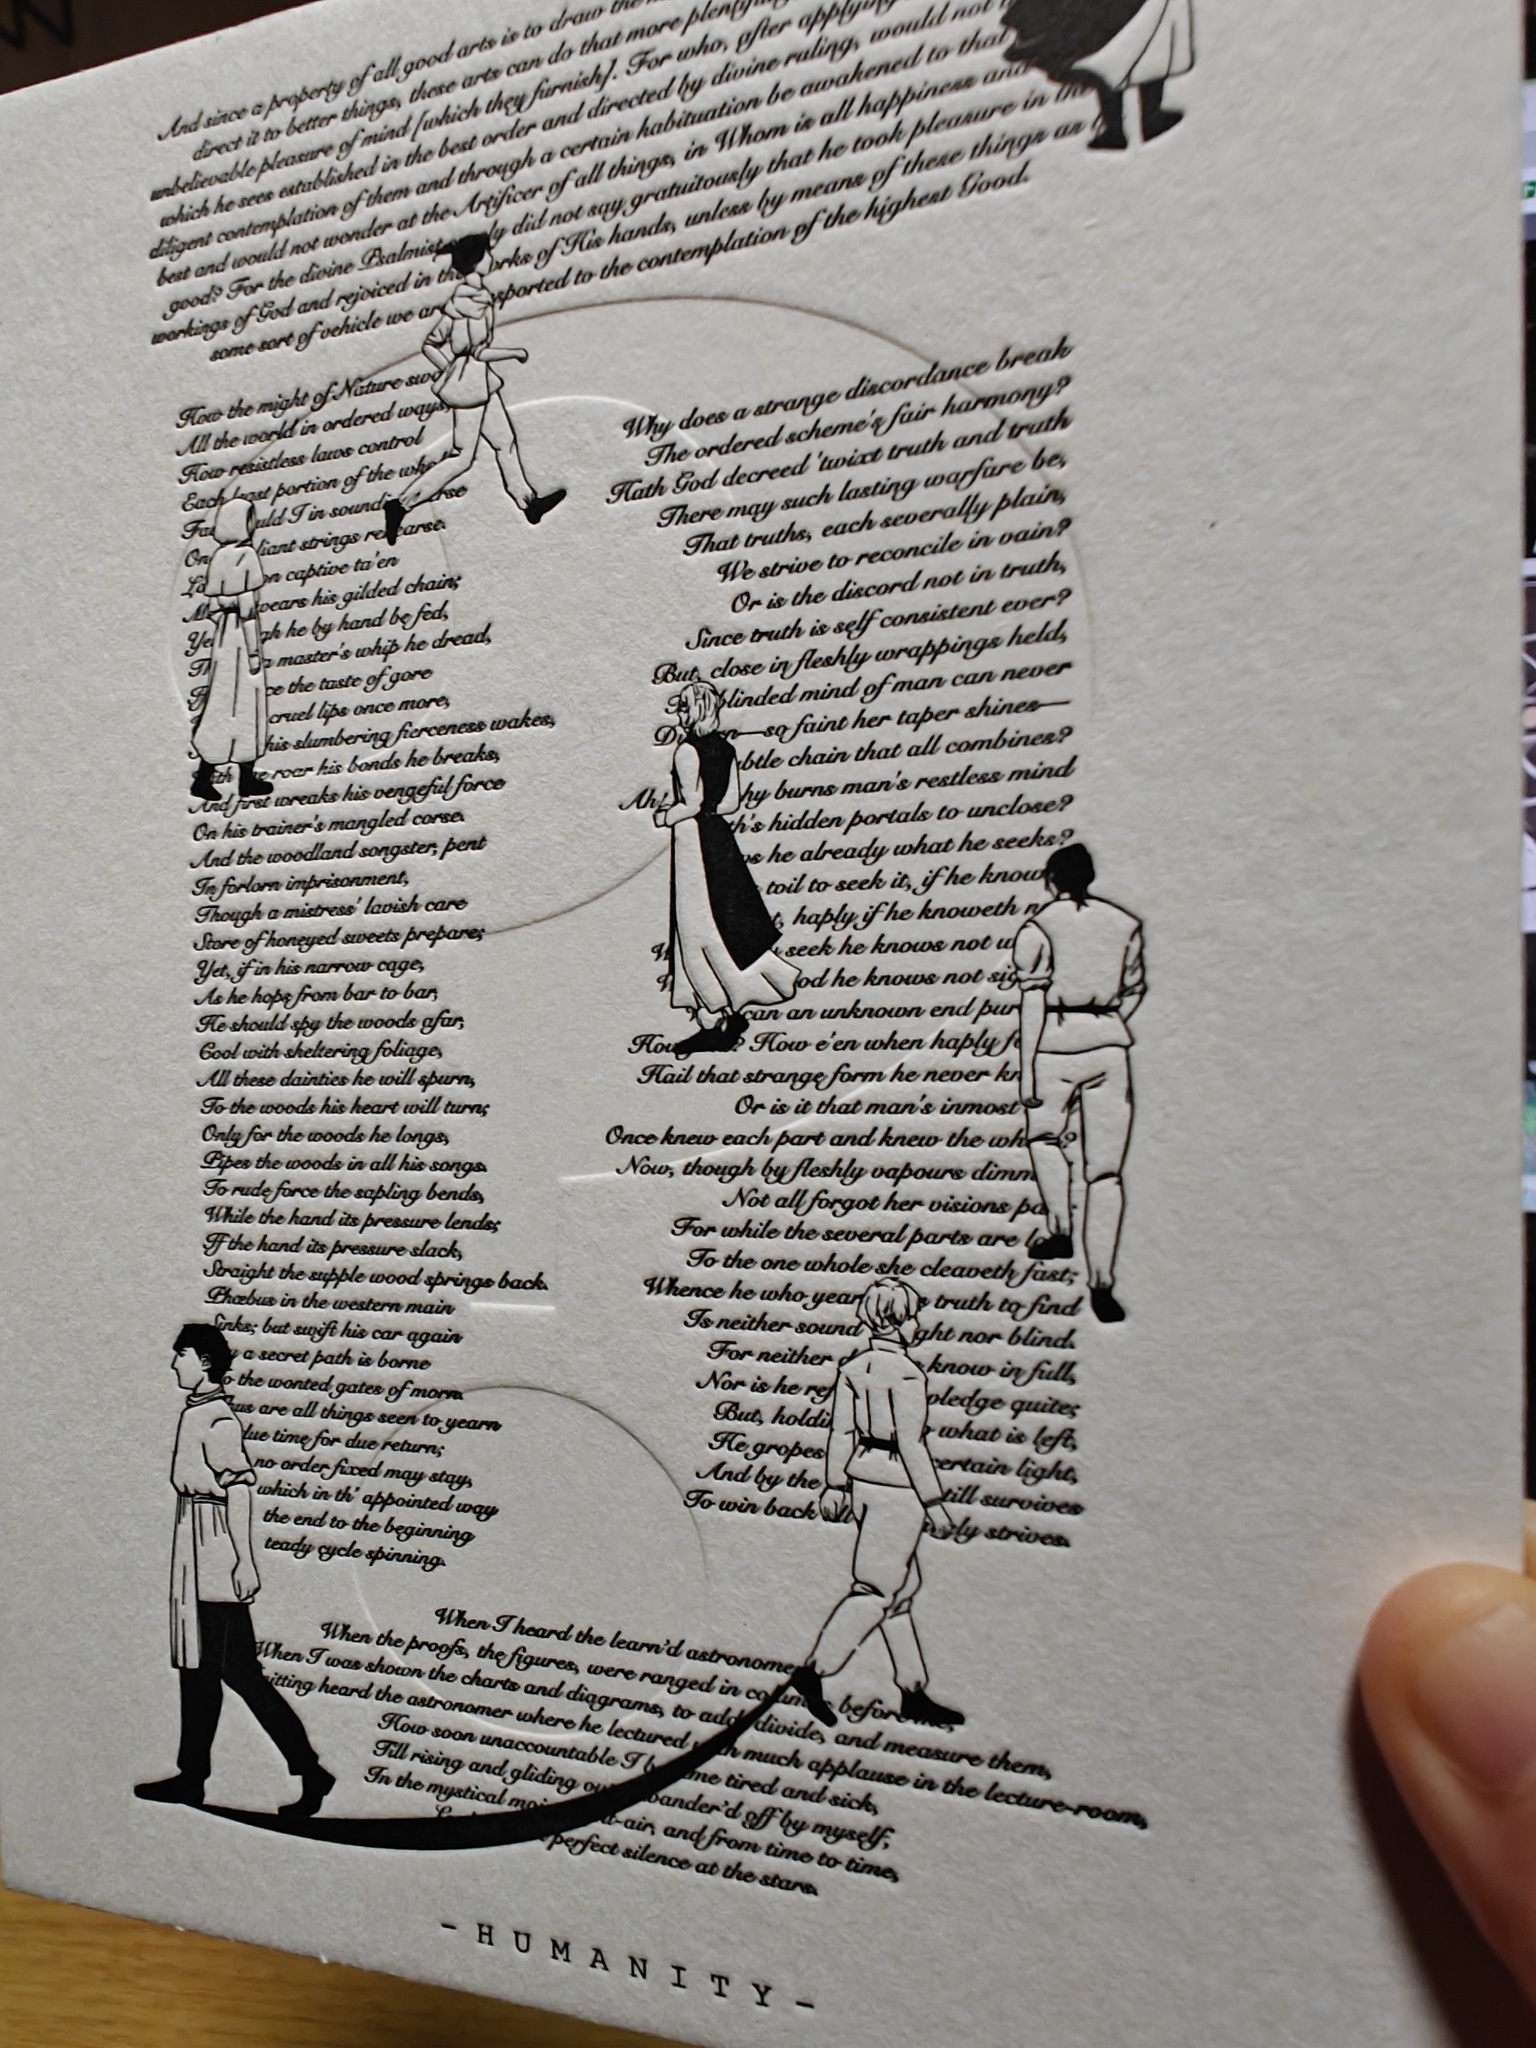 And since a property of all good arts is to draw the
direct it to better things, these arts can do that more plentifully
unbelievable pleasure of mind [which they furnish]. For who, after applying
which he sees established in the best order and directed by divine ruling, would not
diligent contemplation of them and through a certain habituation be awakened to that
best and would not wonder at the Artificer of all things, in Whom is all happiness and
good? For the divine Psalmist did not say gratuitously that he took pleasure in the
workings of God and rejoiced in the works of His hands, unless by means of these things as
some sort of vehicle we are transported to the contemplation of the highest Good.
How the might of Nature sways
All the world in ordered ways,
How resistless laws control
Each least portion of the whole
Fain would I in sounding verse
On pliant strings rehearse.
on captive ta'en
wears his gilded chain;
Yet though he by hand be fed,
a master's whip he dread,
the taste of gore
cruel lips once more,
his slumbering fierceness wakes,
With one roar his bonds he breaks,
And first wreaks his vengeful force
On his trainer's mangled corse.
And the woodland songster, pent
In forlorn imprisonment,
Though a mistress' lavish care
Store of honeyed sweets prepare;
Yet, if in his narrow cage,
As he hops from bar to bar,
He should spy the woods afar,
Cool with sheltering foliage,
All these dainties he will spurn,
To the woods his heart will turn;
Only for the woods he longs,
Pipes the woods in all his songs.
To rude force the sapling bends,
While the hand its pressure lends;
If the hand its pressure slack,
Straight the supple wood springs back.
Phœbus in the western main
Sinks; but swift his car again
By a secret path is borne
To the wonted gates of morn.
Thus are all things seen to yearn
due time for due return;
no order fixed may stay,
which in th' appointed way
the end to the beginning
steady cycle spinning.
Why does a strange discordance break
The ordered scheme's fair harmony?
Hath God decreed 'twixt truth and truth
There may such lasting warfare be,
That truths, each severally plain,
We strive to reconcile in vain?
Or is the discord not in truth,
Since truth is self consistent ever?
But, close in fleshly wrappings held,
blinded mind of man can never
Discern—so faint her taper shines—
subtle chain that all combines?
Ah! why burns man's restless mind
Truth's hidden portals to unclose?
he already what he seeks?
toil to seek it, if he know
haply if he knoweth
seek he knows not
he knows not
can an unknown end
How e'en when haply
Hail that strange form he never
Or is it that man's inmost
Once knew each part and knew the whole?
Now, though by fleshly vapours
Not all forgot her visions
For while the several parts are
To the one whole she cleaveth fast;
Whence he who yearns truth to find
Is neither sound of sight nor blind.
For neither does he know in full,
Nor is he reft of knowledge quite;
But, holding what is left,
He gropes uncertain light,
And by the still survives
To win back all strives.
When I heard the learn'd astronomer
When the proofs, the figures, were ranged in columns before me,
When I was shown the charts and diagrams, to add, divide, and measure them,
sitting heard the astronomer where he lectured with much applause in the lecture-room,
How soon unaccountable I became tired and sick,
Till rising and gliding out I wander'd off by myself,
In the mystical moist night-air, and from time to time,
perfect silence at the stars.
-HUMANITY-